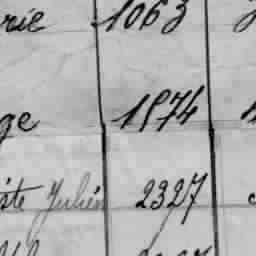 rie 1063
ge 1974
iste Julien 2327